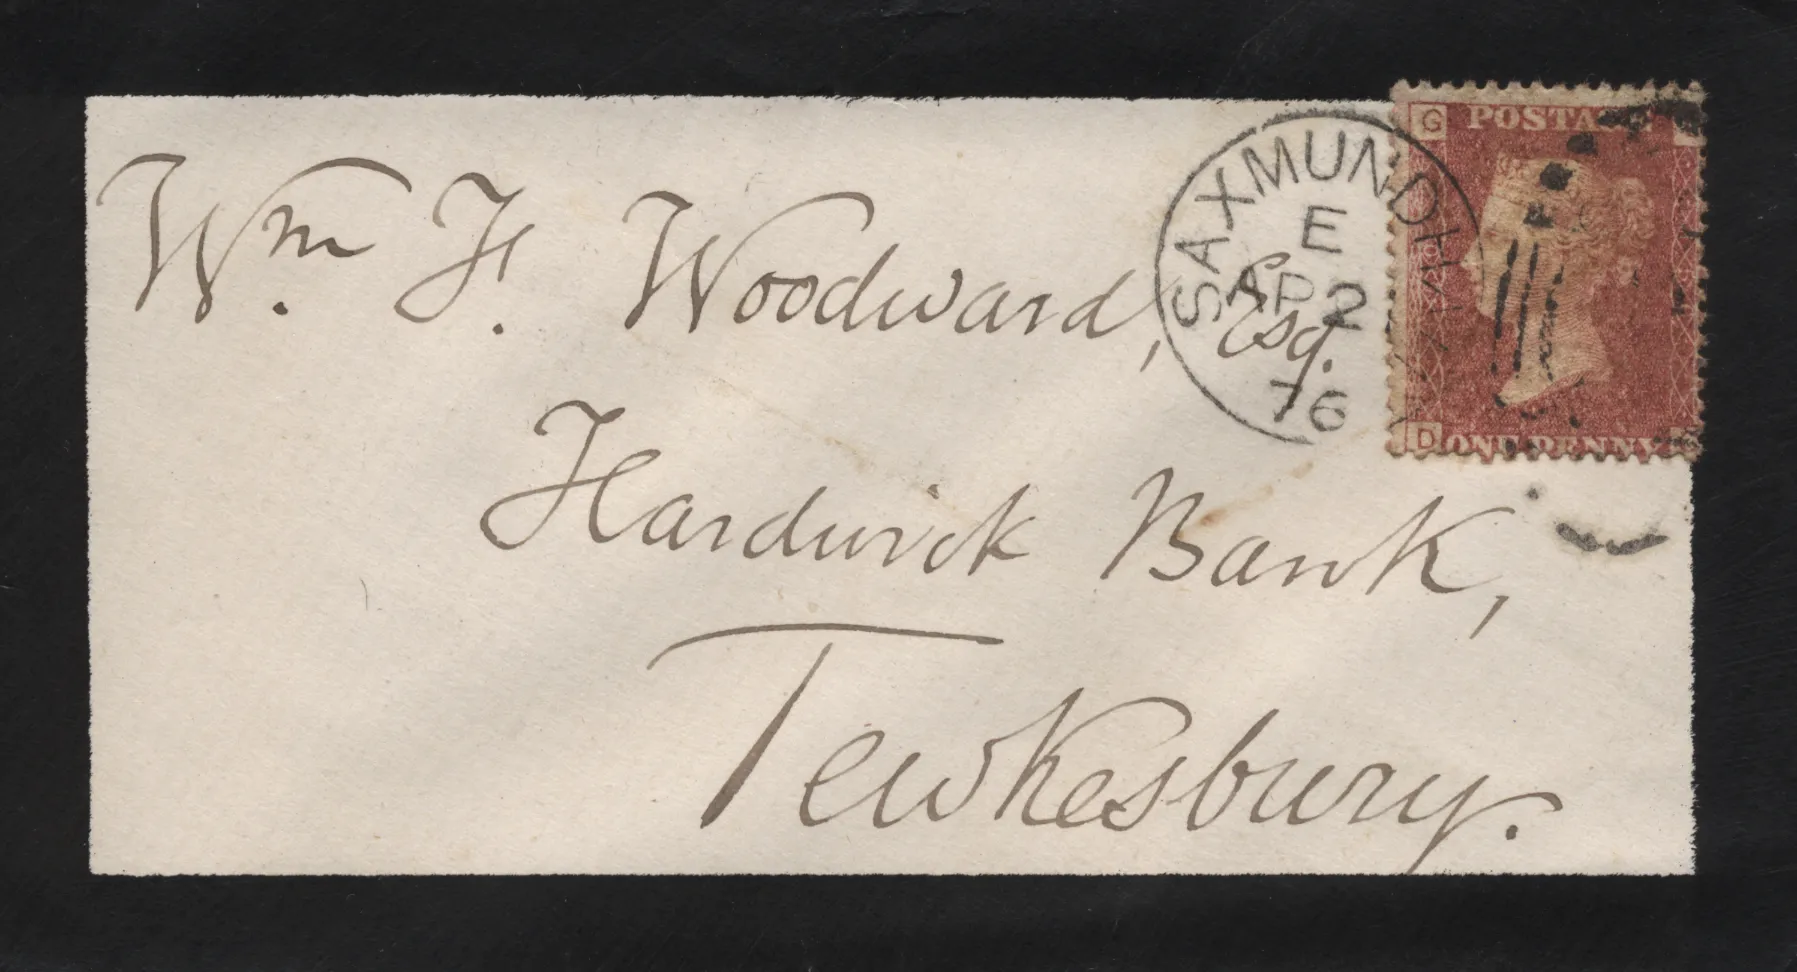 Wm F. Woodward, Esq.
Hardwick Bank,
Tewkesbury.
SAXMUNDHAM
E
AP 2
76
G
POSTAGE
D ONE PENNY